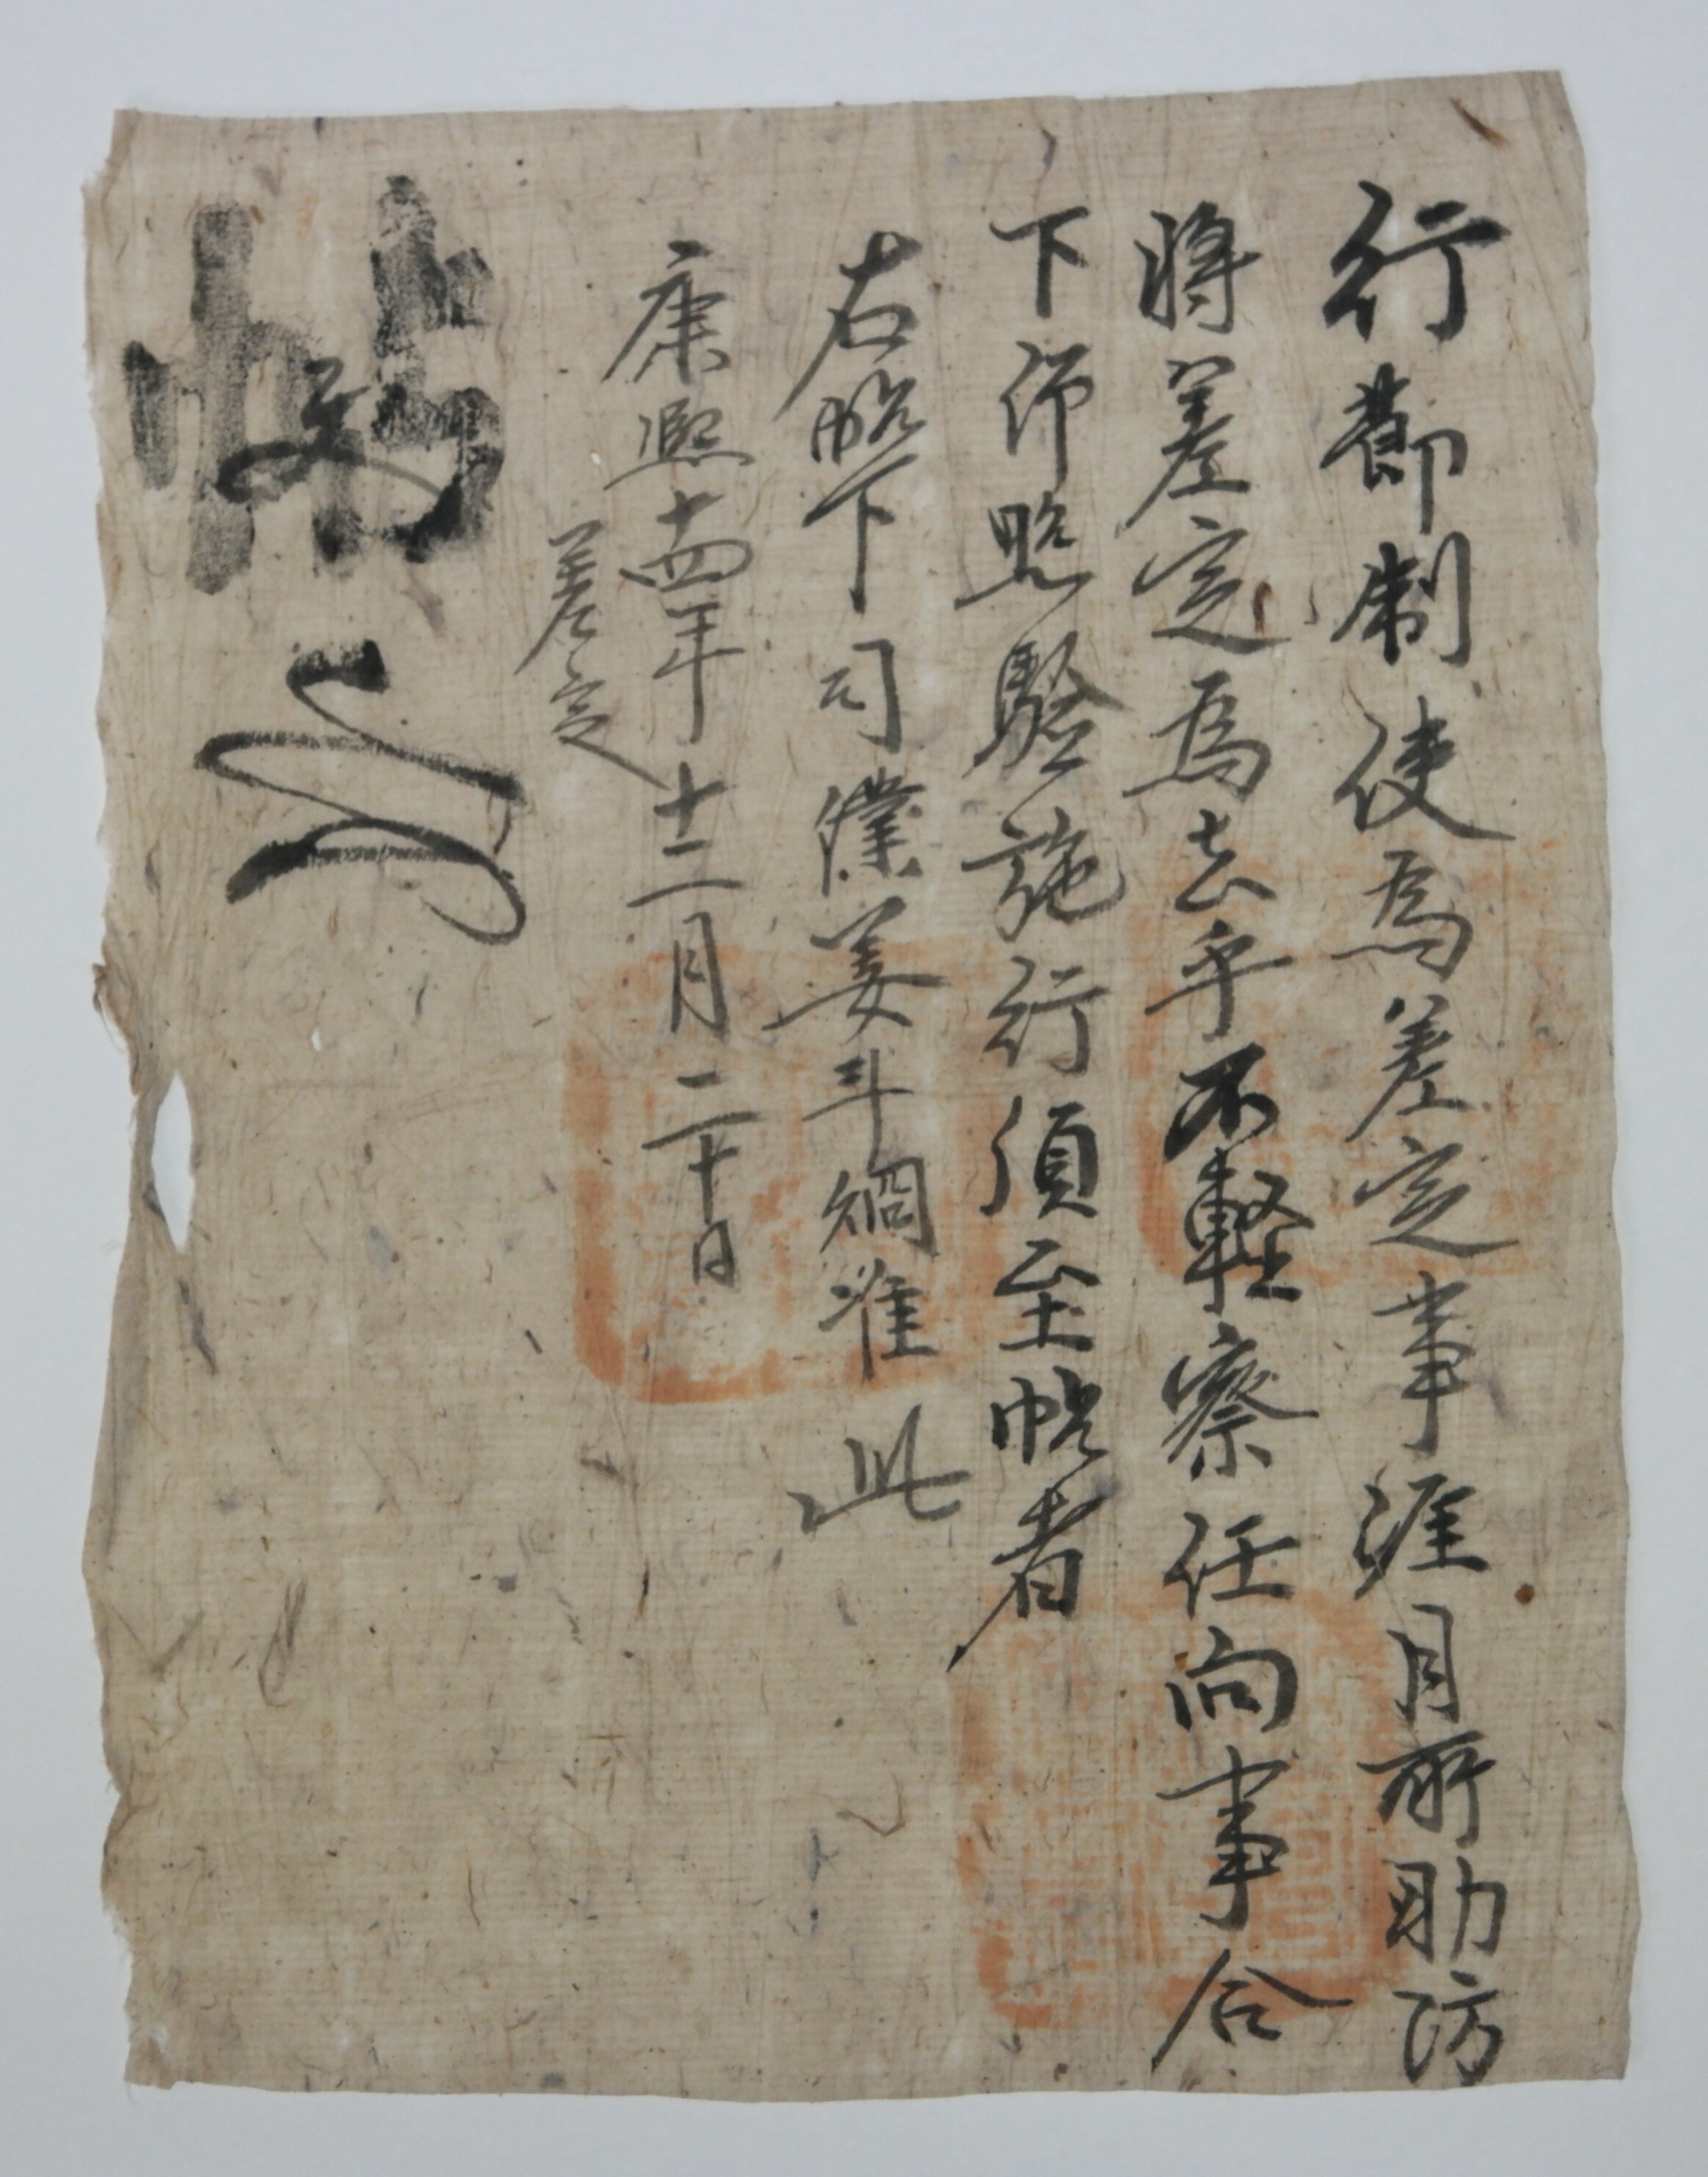 行節制使爲差定事涯月所助防
將差定爲去乎不輕察任向事合
下仰照驗施行須至帖者
右帖下司僕姜斗准此
康熙十四年十二月二十日
差定
帖